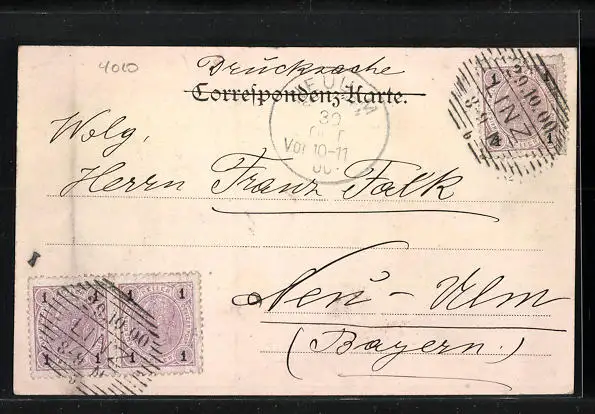 4010
Drucksache
Correspondenz-Karte.
NEU-ULM
30
OCT
Vor 10-11
00
1 1
29.10.00
LINZ
8-9
1 1
Wolg,
Herrn Franz Falk
Neu-Ulm
(Bayern.)
1 1 1
29.10.00
LINZ
8-9
1 1 1